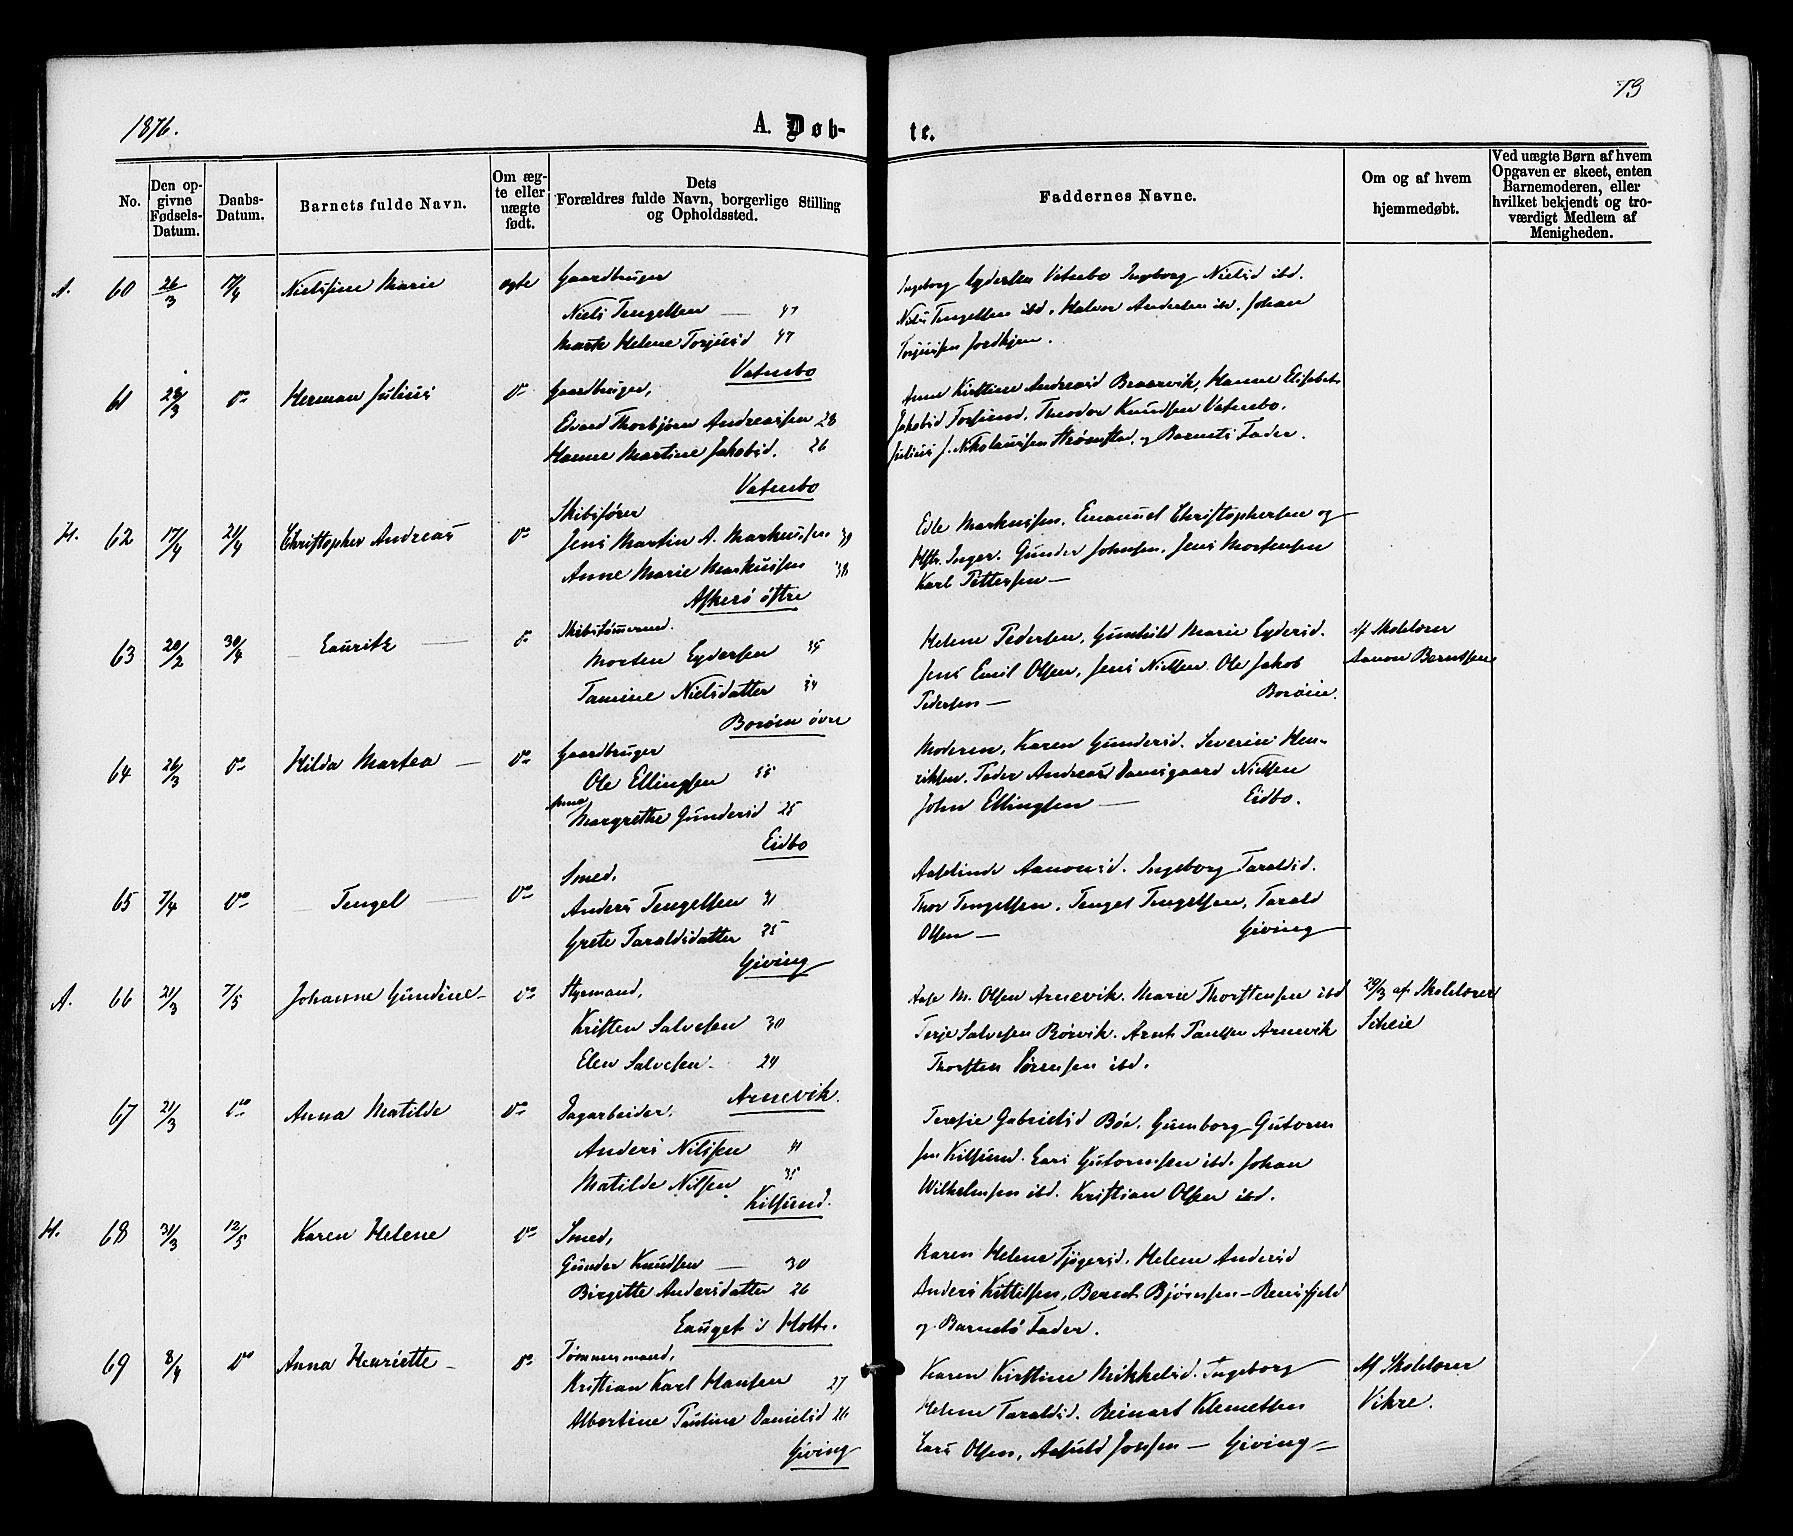 1876.
A. Døb-
te.
73
No.
Den op-
givne
Fødsels-
Datum.
Daabs-
Datum.
Barnets fulde Navn.
Om æg-
te eller
uægte
født.
Dets
Forældres fulde Navn, borgerlige Stilling
og Opholdssted.
Faddernes Navne.
Om og af hvem
hjemmedøbt.
Ved uægte Børn af hvem
Opgaven er skeet, enten
Barnemoderen, eller
hvilket bekjendt og tro-
værdigt Medlem af
Menigheden.
A. 60 26/3 17/4 Nielsine Marie ægte Gaardbruger
Niels Tengelsen — 47
Marte Helene Torjusd 47
Vatnebo
Ingeborg Eydersen Vatnebo Ingborg Nielsd ibd.
Niels Tengelsen ibd. Halvor Andersen ibd. Johan
Torjussen
61 28/3 do Herman Julius do Gaardbruger,
Edvard Thorbjørn Andreassen 28
Hanne Martine Jakobsd. 26
Vatnebo
Anne Kirstine Andreasd Braarvik, Hanne Elisabet
Jakobsd Torsund. Theodor Knudsen Vatnebo.
Julius J. Nikolaisen og Barnets Fader.
H. 62 17/4 21/4 Christopher Andreas do Skibsfører
Jens Martin A. Markussen 39
Anne Marie Markussen 38
Askerø østre
Edle Markussen. Emanuel Christophersen og
Hstr. Inger. Gunder Johnsen. Jens Mortensen
Karl Pettersen —
63 20/2 30/4 — Lauritz — do Skibstømmermd.
Morten Eydersen 35
Tamine Nielsdatter 34
Borøen øvre
Helene Pedersen, Gunhild Marie Eydersd.
Jens Emil Olsen, Jens Nielsen. Ole Jakob
Pedersen — Borøen.
Af Skolelærer
Aanon Berntsen
64 26/3 do Hilda Martea — do Gaardbruger
Ole Ellingsen 55
Anne
Margrethe Gundersd 25
Eidbo
Moderen, Karen Gundersd. Severine Hen-
riksen. Fader Andreas Damsgaard Nielsen
John Ellingsen — Eidbo.
65 7/4 do — Tengel — do Smed,
Anders Tengelsen 31
Grete Taraldsdatter 35
Giving
Aaselinde Aanonsd. Ingeborg Taraldsd.
Thor Tengelsen. Tengel Tengelsen, Tarald
Olsen — Giving —
A. 66 21/3 7/5 Johanne Gundine — do Styrmand,
Kristen Salvesen 30
Elen Salvesen. 24
Arnevik.
Aase M. Olsen Arnevik. Marie Thorstensen ibd
Terje Salvesen Børvik. Arnt Paulsen Arnevik
Thorsten Sørensen ibd.
29/3 af Skolelærer
Scheie
67 21/3 do Anna Matilde do Dagarbeider.
Anders Nilssen 41
Matilde Nilsen 35
Kilsund.
Teresie Gabrielsd Bøe. Gumborg Gutorm
sen Kilsund. Lars Gutormsen ibd. Johan
Wilhelmsen ibd. Kristian Olsen ibd.
H. 68 31/3 12/5 Karen Helene do Smed,
Gunder Knudsen — 30
Birgitte Andersdatter 26
Lauget i Holt.
Karen Helene Tjøgersd. Helene Andersd
Anders Kittelsen, Bernt Bjørnsen — Rensfjeld
og Barnets Fader.
69 8/4 do Anna Henriette — do Tømmermand,
Kristian Karl Hansen 27
Albertine Pauline Danielsd 26
Giving
Karen Kirstine Mikkelsd. Ingeborg
Helene Taraldsd. Reinart Klemetsen
Lars Olsen, Asuld Jonsen — Giving —
Af Skolelærer
Vikre.